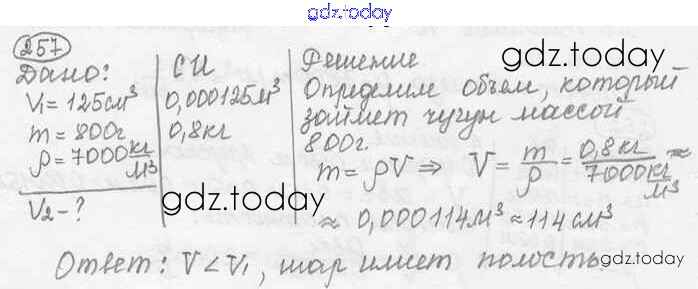 gdz.today
257
Дано:
V₁=125см³
m=800г
ρ=7000 кг/м³
V₂-?
СИ
0,000125м³
0,8кг
gdz.today
Решение
gdz.today
Определим объем, который
займет чугун массой
800г.
gdz.today
m=ρV ⇒ V=m/ρ=0,8кг/7000кг/м³≈
≈ 0,000114м³≈114см³
gdz.today
Ответ: V<V₁, шар имеет полость.
gdz.today